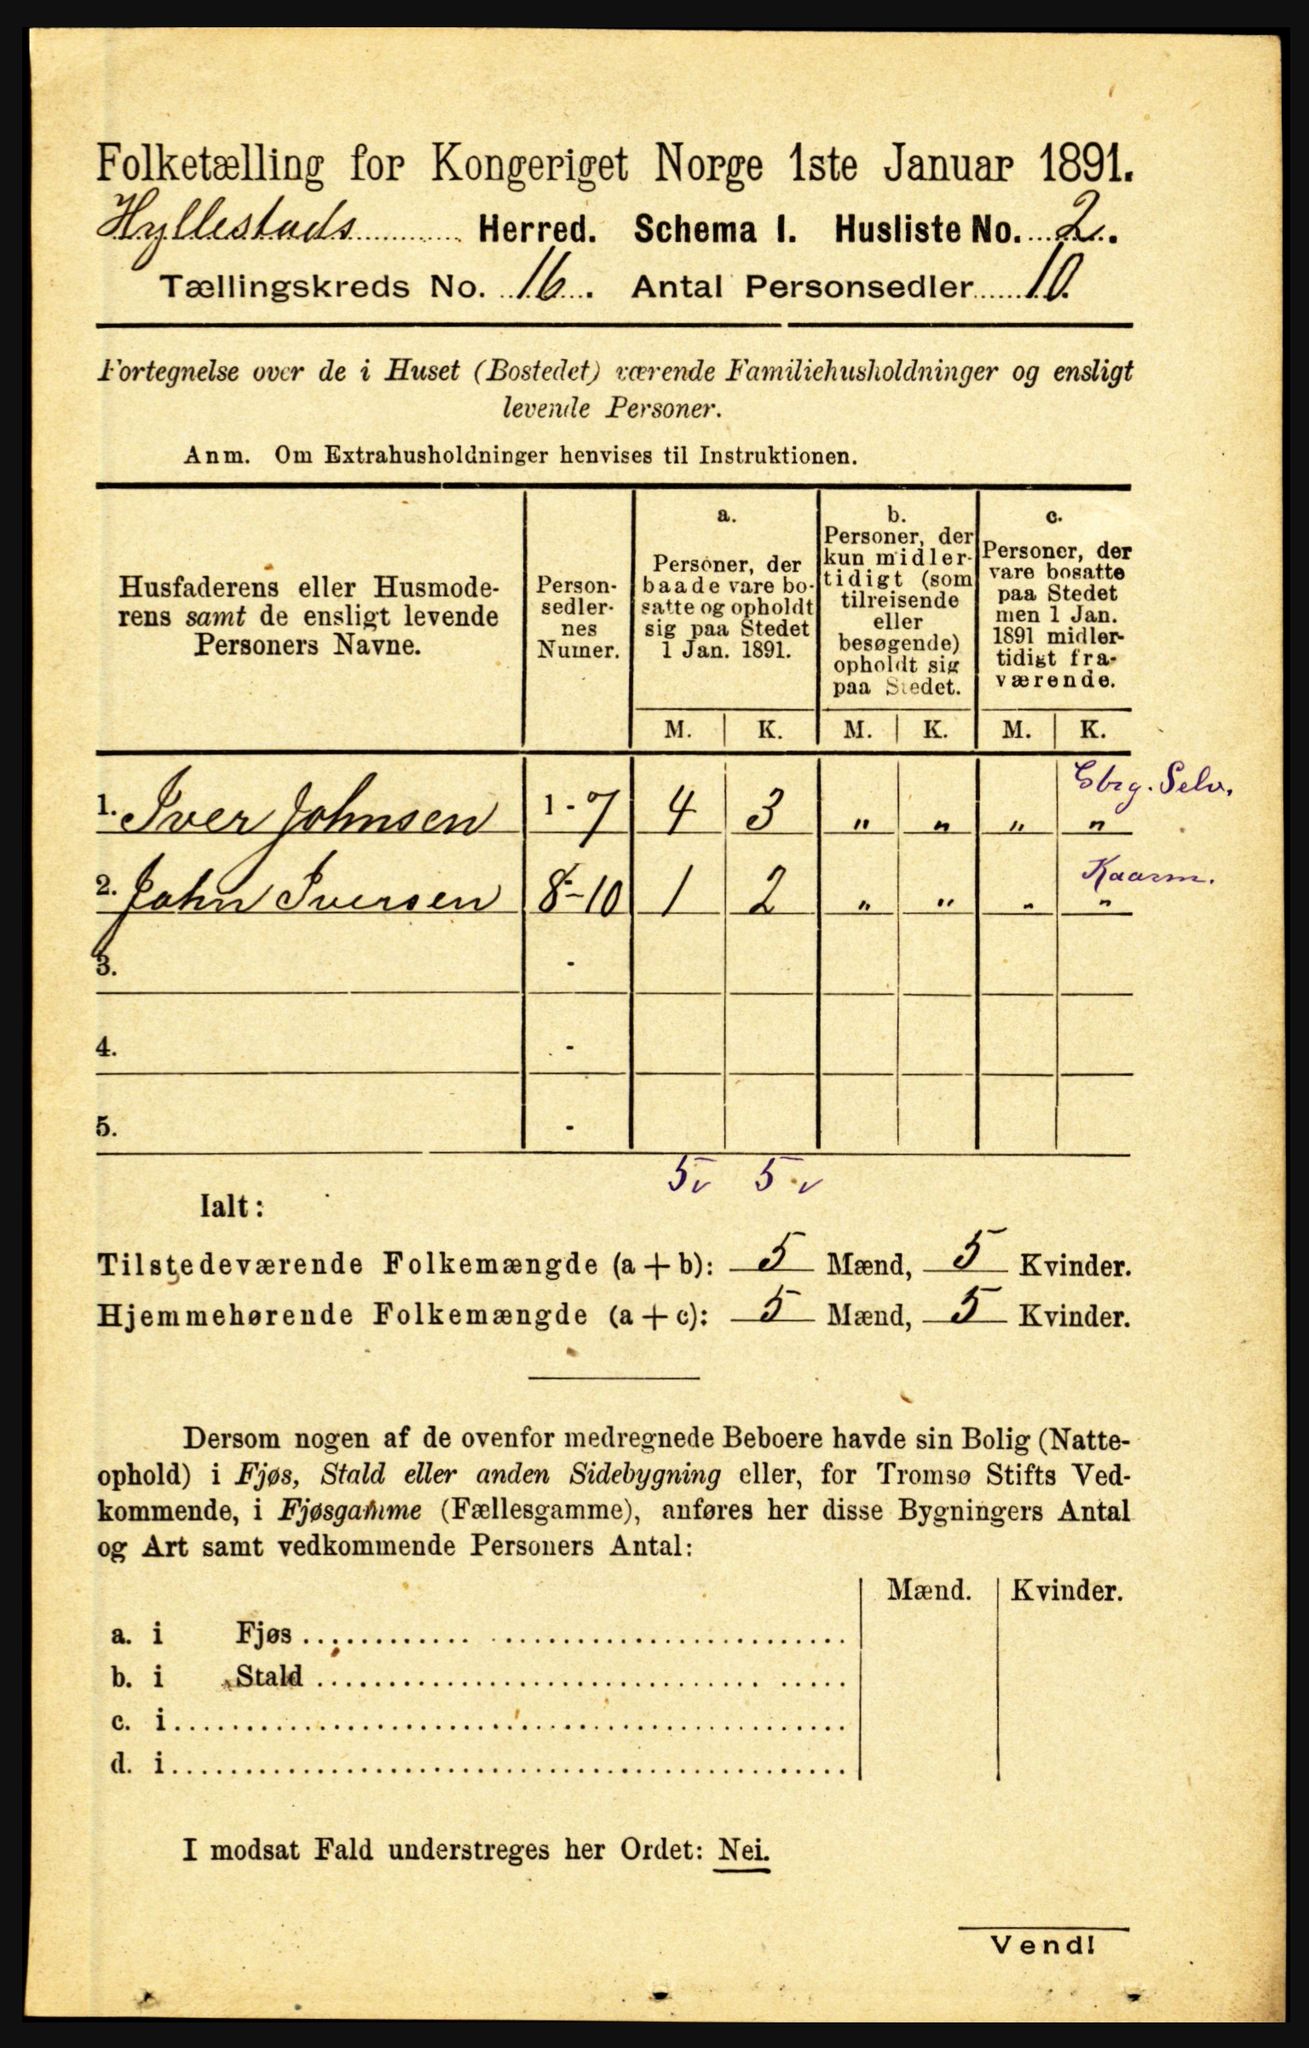 Folketælling for Kongeriget Norge 1ste Januar 1891.
Hyllestads Herred. Schema I. Husliste No. 2.
Tællingskreds No. 16. Antal Personsedler 10.
Fortegnelse over de i Huset (Bostedet) værende Familiehusholdninger og ensligt
levende Personer.
Anm. Om Extrahusholdninger henvises til Instruktionen.
Husfaderens eller Husmode-
rens samt de ensligt levende
Personers Navne.
Person-
sedler-
nes
Numer.
a.
Personer, der
baade vare bo-
satte og opholdt
sig paa Stedet
1 Jan. 1891.
b.
Personer, der
kun midler-
tidigt (som
tilreisende
eller
besøgende)
opholdt sig
paa Stedet.
c.
Personer, der
vare bosatte
paa Stedet
men 1 Jan.
1891 midler-
tidigt fra-
værende.
M. K. M. K. M. K.
Gbrg. Selv.
1. Iver Johnsen 1-7 4 3 " " " "
Kaarm.
2. John Iversen 8-10 1 2 " " " "
3. -
4. -
5. -
5 v 5 v
Ialt:
Tilstedeværende Folkemængde (a + b): 5 Mænd, 5 Kvinder.
Hjemmehørende Folkemængde (a + c): 5 Mænd, 5 Kvinder.
Dersom nogen af de ovenfor medregnede Beboere havde sin Bolig (Natte-
ophold) i Fjøs, Stald eller anden Sidebygning eller, for Tromsø Stifts Ved-
kommende, i Fjøsgamme (Fællesgamme), anføres her disse Bygningers Antal
og Art samt vedkommende Personers Antal:
Mænd. Kvinder.
a. i Fjøs
b. i Stald
c. i
d. i
I modsat Fald understreges her Ordet: Nei.
Vend!